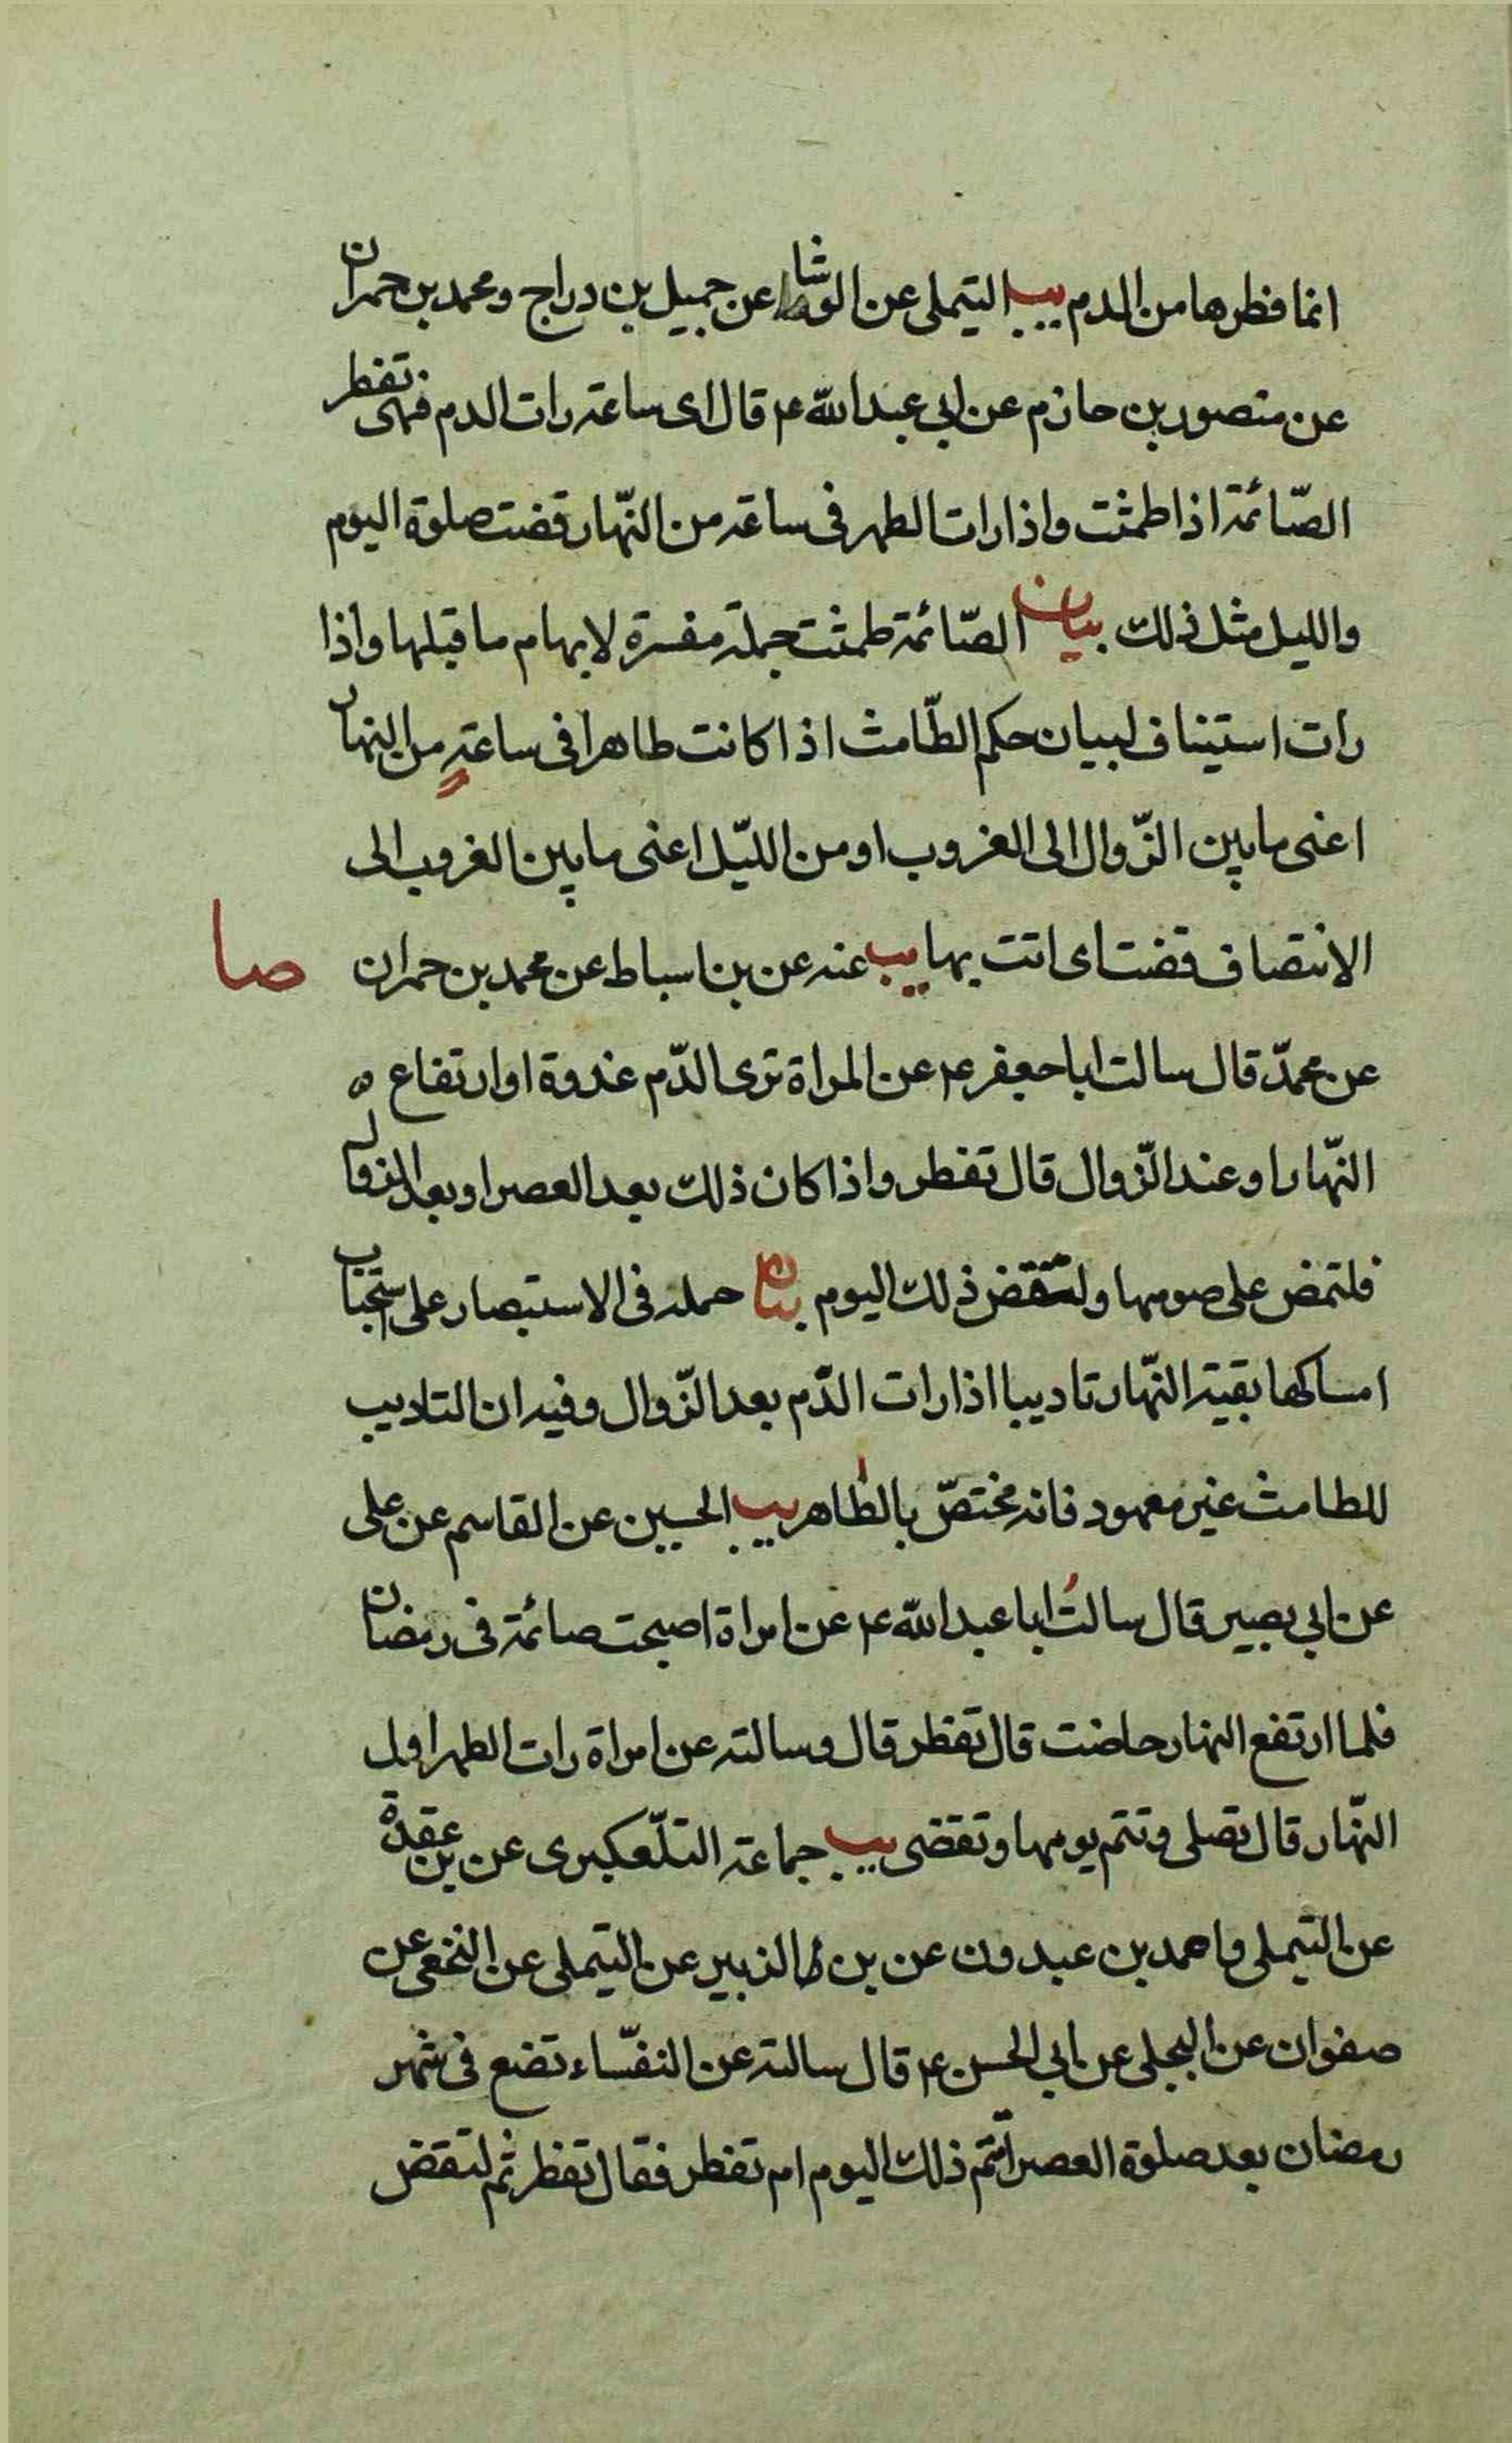 انما فطرها من الدم يب التيملى عن الوشا عن جميل بن دراج ومحمد بن حمران
عن منصور بن حازم عن ابي عبد الله ع قال اى ساعة رات الدم فهى تفطر
الصّائمة اذا طمثت واذا رات الطهر فى ساعة من النّهار قضت صلوة اليوم
والليل مثل ذلك بيان الصّائمة طمثت جملة مفسرة لابهام ما قبلها واذا
رات استيناف لبيان حكم الطّامث اذا كانت طاهرا فى ساعةٍ من النهار
اعنى ما بين الزّوال الى الغروب او من الليّل اعنى ما بين الغروب الى
الانتصاف قضت اى اتت بها يب عنه عن بن اسباط عن محمد بن حمران
صا
عن محمدّ قال سالت ابا جعفر ع عن المراة ترى الدّم غدوة او ارتفاع ه
النّهار او عند الزّوال قال تفطر واذا كان ذلك بعد العصر او بعد الزوال
فلتمض على صومها ولتقض ذلك اليوم بيان حمله فى الاستبصار على استحباب
امساكها بقية النّهار تاديبا اذا رات الدّم بعد الزّوال وفيه ان التاديب
للطامث غير معهود فانه مختصّ بالطاهر يب الحسين عن القاسم عن على
عن ابي بصير قال سالتُ ابا عبد الله ع عن امراة اصبحت صائمة فى رمضان
فلما ارتفع النهار حاضت قال تفطر قال وسالته عن امراة رات الطهر اول
النّهار قال تصلى وتتم يومها وتقضى يب جماعة التلّعكبرى عن بن عقدة
عن التيملى واحمد بن عبدون عن بن الزبير عن التيملى عن النخعى عن
صفوان عن البجلى عن ابي الحسن ع قال سالته عن النفسّاء تضع فى شهر
رمضان بعد صلوة العصر اتتم ذلك اليوم ام تفطر فقال تفطر ثم لتقض